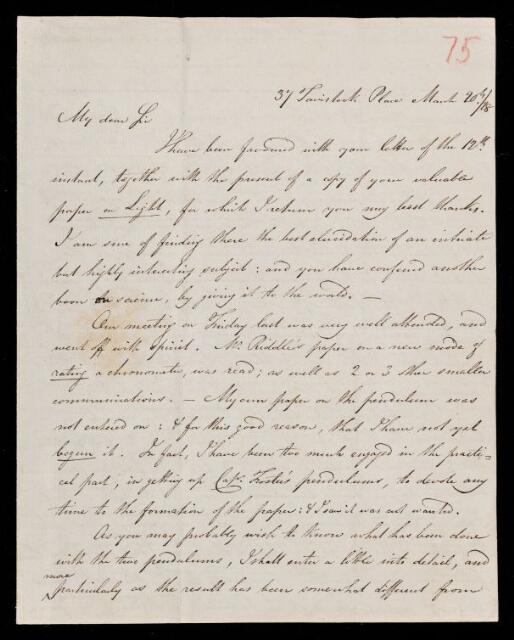 75
37 Tavistock Place March 20th/28
My dear Sir
I have been favoured with your letter of the 12th
instant, together with the present of a copy of your valuable
paper on Light, for which I return you my best thanks.
I am sure of finding there the best elucidation of an intricate
but highly interesting subject: and you have conferred another
boon on science, by giving it to the world. —
Our meeting on Friday last was very well attended, and
went off with spirit. Mr Riddle's paper on a new mode of
rating a chronometer, was read; as well as 2 or 3 other smaller
communications. — My own paper on the pendulum was
not entered on: & for this good reason, that I have not yet
begun it. In fact, I have been too much engaged in the practi=
cal part, in getting up Capt. Foster's pendulums, to devote any
time to the formation of the paper: & I saw it was not wanted.
As you may probably wish to know what has been done
with the two pendulums, I shall enter a little into detail, and
more
particularly as the result has been somewhat different from